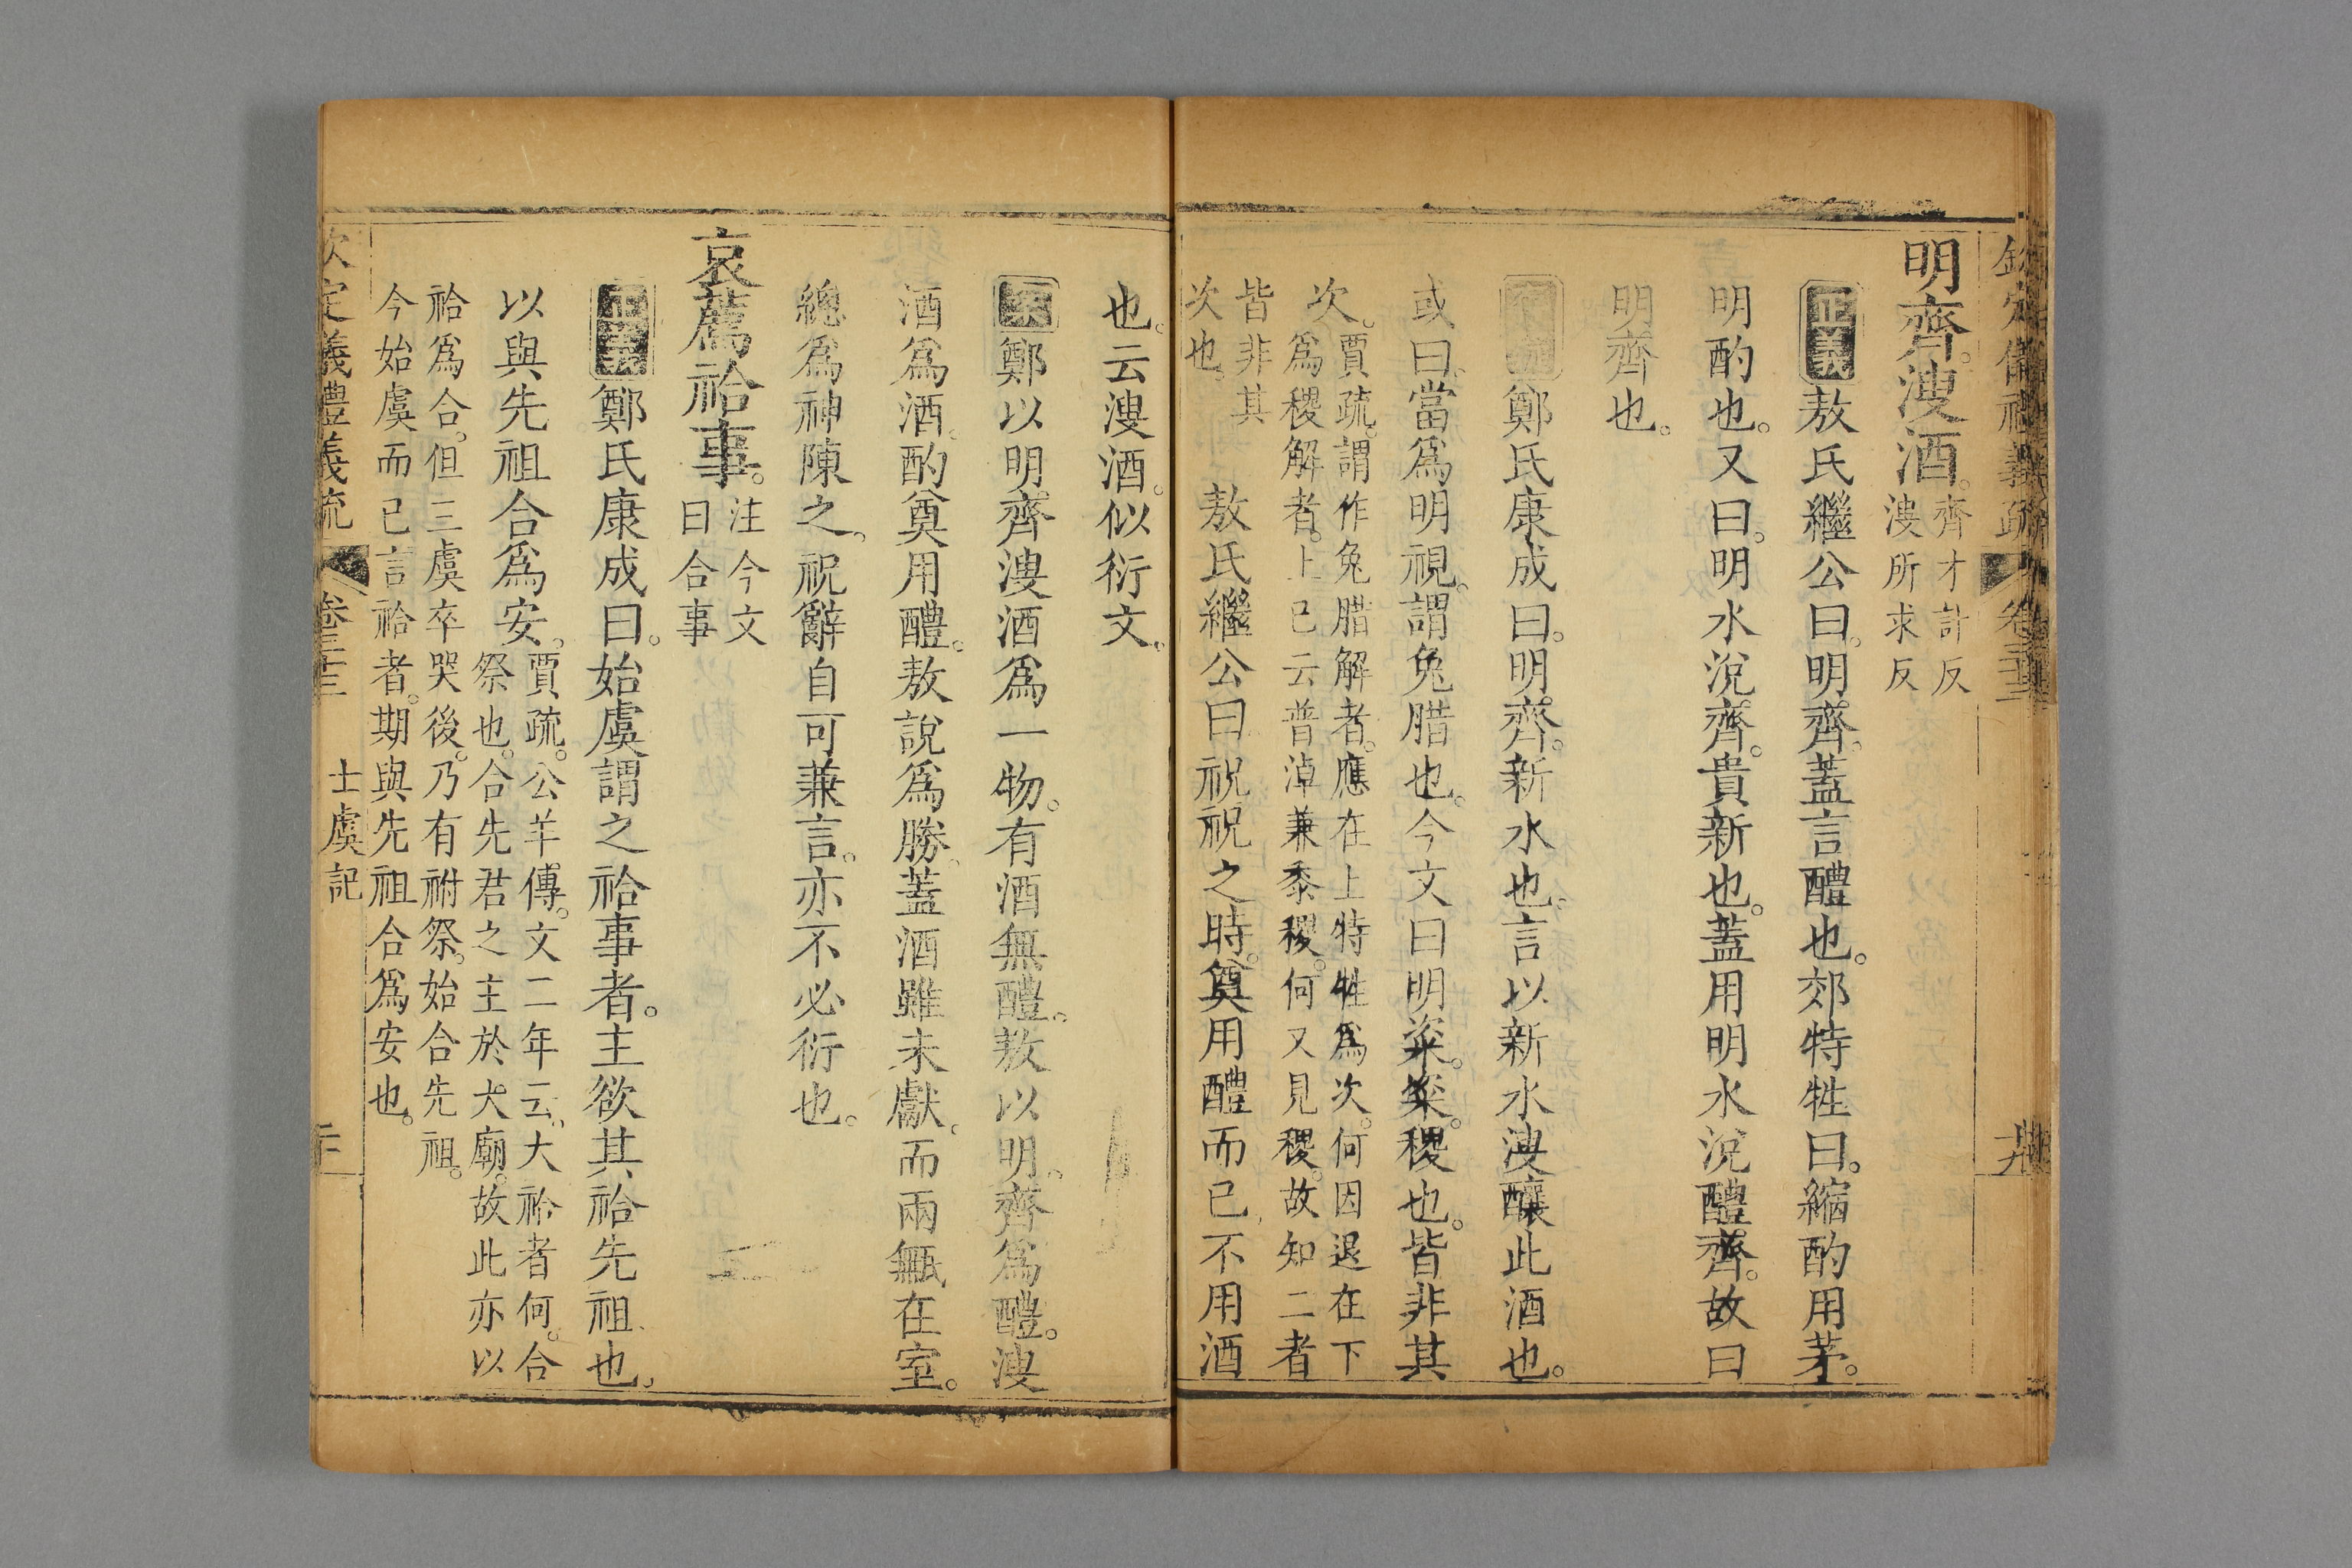 欽定儀禮義疏 卷三十三 十九
明齊溲酒。齊才計反溲所求反
正義敖氏繼公曰。明齊。蓋言醴也。郊特牲曰。縮酌用茅。
明酌也。又曰。明水涚齊。貴新也。蓋用明水涚醴齊。故曰
明齊也。
鄭氏康成曰。明齊。新水也。言以新水溲釀此酒也。
或曰。當爲明視。謂兔腊也。今文曰明粢。粢。稷也。皆非其
次。賈疏。謂作兔腊解者。應在上特牲爲次。何因退在下
爲稷解者。上已云普淖兼黍稷。何又見稷。故知二者
皆非其
次也。敖氏繼公曰祝祝之時。奠用醴而已不用酒
也。云溲酒。似衍文。
案鄭以明齊溲酒爲一物。有酒無醴。敖以明齊爲醴。溲
酒爲酒。酌奠用醴。敖說爲勝。蓋酒雖未獻。而兩甒在室。
總爲神陳之。祝辭自可兼言。亦不必衍也。
哀薦祫事。注今文曰合事
正義鄭氏康成曰。始虞謂之祫事者。主欲其祫先祖也。
以與先祖合爲安。賈疏。公羊傳。文二年云。大祫者何。合
祭也。合先君之主於大廟。故此亦以
祫爲合。但三虞卒哭後。乃有祔祭。始合先祖。
今始虞而已言祫者。期與先祖合爲安也。
欽定儀禮義疏 卷三十三 士虞記